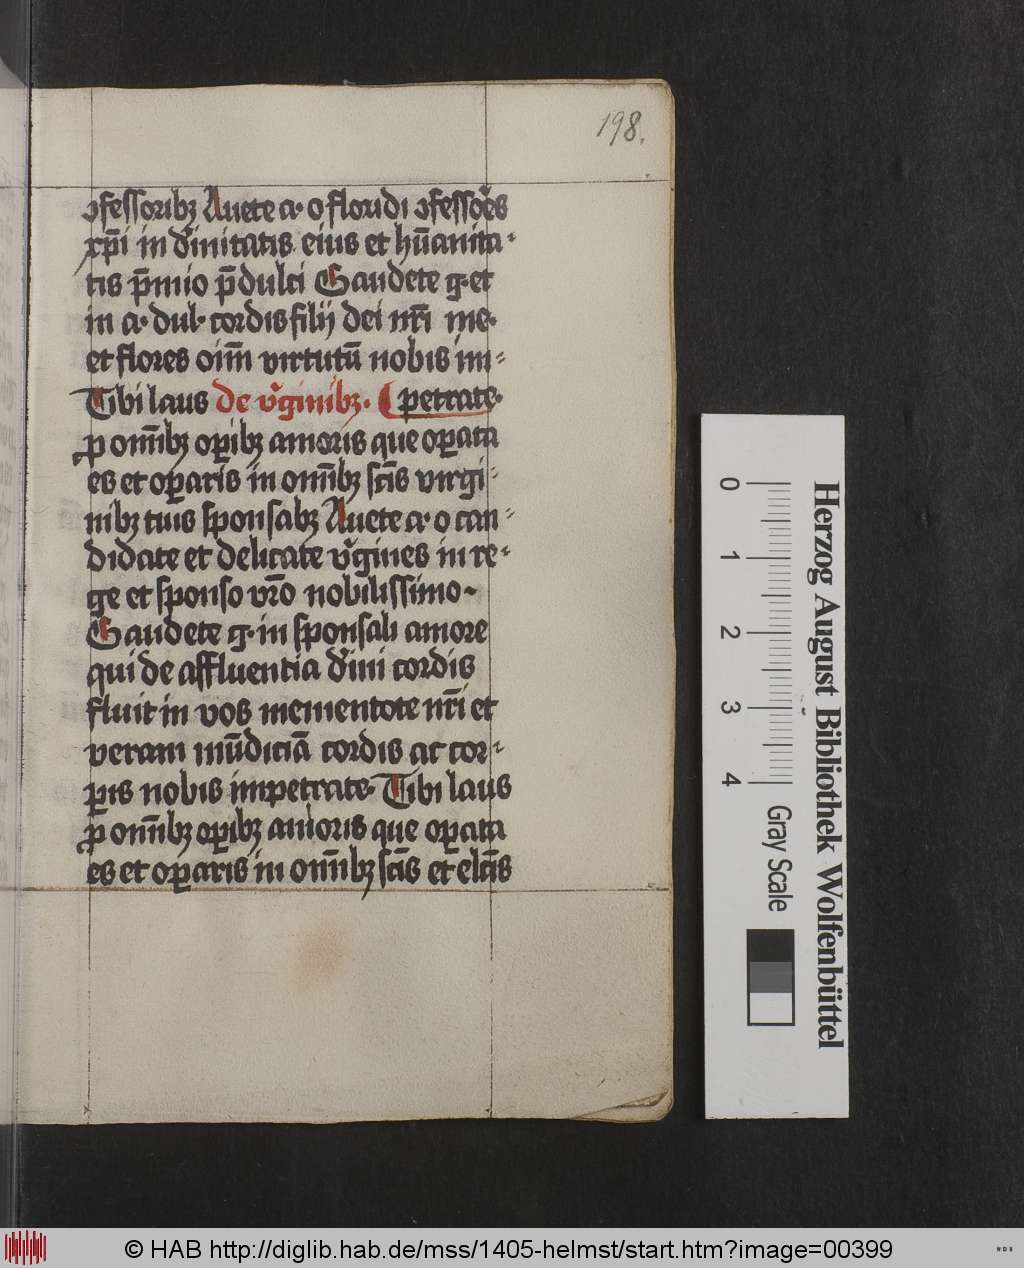 198.
ꝯfessoribꝫ Auete a· o floridi ꝯfesso͛es
xp̄i in diͥnitatis eius et hūanita-
tis p̄mio p̄dulci Gaudete g· et
in a· dul· cordis filij dei nr̄i me·
et flores oim̄ virtutū nobis im-
Tibi laus de vͥginibꝫ· petrate·
ꝓ omībꝫ oꝑibꝫ amoris que oꝑata
es et oꝑaris in omībꝫ sc̄is virgi-
nibꝫ tuis sponsabꝫ Auete a· o can-
didate et delicate vͥgines in re-
ge et sponso vr̄o nobilissimo·
Gaudete g· in sponsali amore
qui de affluentia diͥni cordis
fluit in vos mementote nr̄i et
veram mūdiciā cordis ac cor-
ꝑis nobis impetrate· Tibi laus
ꝓ omībꝫ oꝑibꝫ amoris que oꝑata
es et oꝑaris in omībꝫ sc̄is et elc̄is
0 1 2 3 4
Gray Scale
Herzog August Bibliothek Wolfenbüttel
© HAB http://diglib.hab.de/mss/1405-helmst/start.htm?image=00399